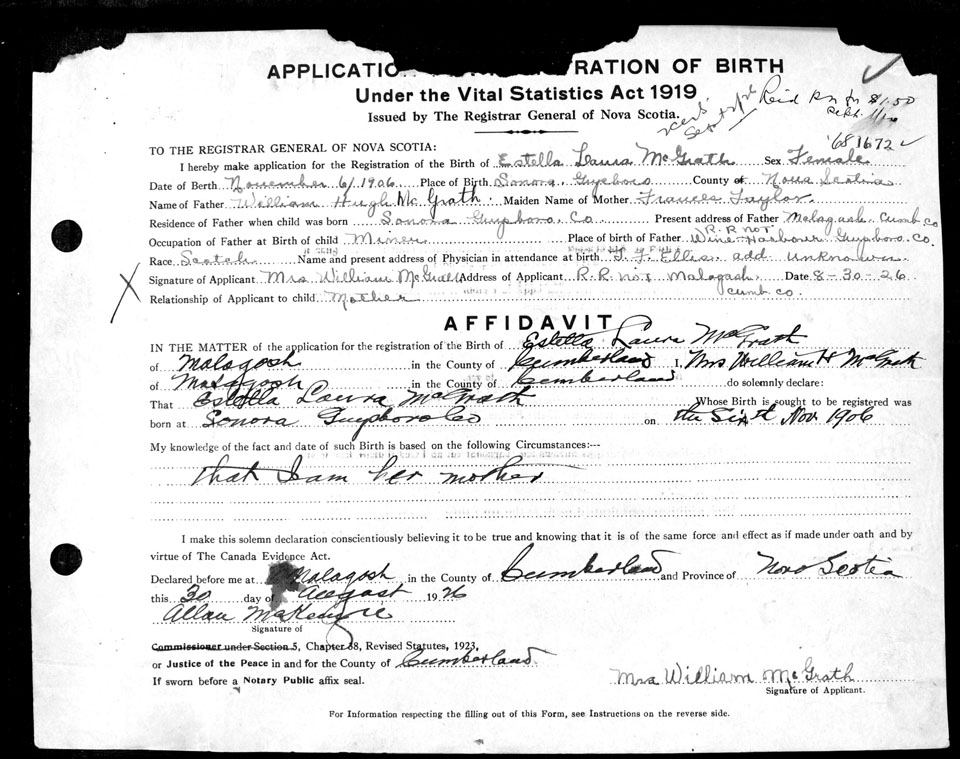 APPLICATIO RATION OF BIRTH
Under the Vital Statistics Act 1919
Issued by The Registrar General of Nova Scotia.
$1.50
681672
TO THE REGISTRAR GENERAL OF NOVA SCOTIA:
I hereby make application for the Registration of the Birth of Estella Laura McGrath Sex Female
Date of Berth November 6/1906 Place of Birth Sonora Guysboro County of Nova Scotia
Name of Father William Hugh McGrath Maiden Name of Mother Frances Taylor
Residence of Father when child was born Sonora Guysboro Co Present address of Father Malagash Cumb co
R.R no 1
Occupation of Father at Birth of child Miner Place of birth of Father Wine Harbour Guysboro. Co.
Race Scotch Name and present address of Physician in attendance at birth Ellis add unknown
Signature of Applicant Mrs William McGrath Address of Applicant R.R. no 1 Malagash Date 8-30-26
Cumb co.
Relationship of Applicant to child Mother
AFFIDAVIT
IN THE MATTER of the application for the registration of the Birth of Estella Laura McGrath
of Malagosh in the County of Cumberland I, Mrs William H McGrath
of Malagosh in the County of Cumberland do solemnly declare:
That Estella Laura McGrath Whose Birth is sought to be registered was
born at Sonora Guysboro Co on the Sixth Nov 1906
My knowledge of the fact and date of such Birth is based on the following Circumstances:--
that I am her mother
I make this solemn declaration conscientiously believing it to be true and knowing that it is of the same force and effect as if made under oath and by
virtue of The Canada Evidence Act.
Declared before me at Malagosh in the County of Cumberland and Province of Nova Scotia
this 30 day of August 1926
Allan McKenzie
Signature of
Commissioner under Section 5, Chapter 38, Revised Statutes, 1923,
or Justice of the Peace in and for the County of Cumberland
If sworn before a Notary Public affix seal.
Mrs William McGrath
Signature of Applicant.
For Information respecting the filling out of this Form, see Instructions on the reverse side.